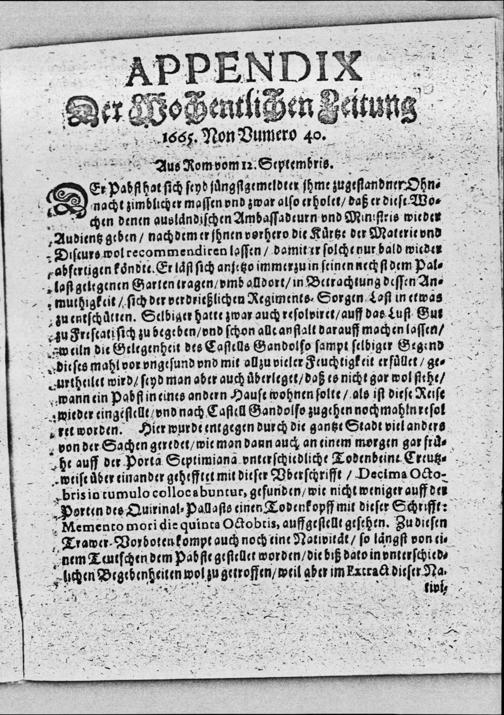 APPENDIX
Der Wochentlichen Zeitung
1665. Non Numero 40.
Aus Rom vom 12. Septembris.
DEr Pabst hat sich seyd jüngstgemeldter ihme zugestandner Ohn-
nacht zimblicher massen vnd zwar also erholet / daß er diese Wo-
chen denen ausländischen Ambassadeurn vnd Ministris wieder
Audientz geben / nachdem er ihnen vorhero die Kürtze der Materie vnd
Discurs wol recommendiren lassen / damit er solche nur bald wieder
abfertigen köndte. Er läst sich anjetzo immerzu in seinen nechst dem Pal-
last gelegenen Garten tragen / vmb alldort / in Betrachtung dessen An-
muthigkeit / sich der verdrießlichen Regiments-Sorgen Last in etwas
zu entschütten. Selbiger hatte zwar auch resolviret / auff das Lust Gut
zu Frescati sich zu begeben / vnd schon alle anstalt darauff machen lassen /
weiln die Gelegenheit des Castells Gandolfo sampt selbiger Gegend
dieses mahl vor vngesund vnd mit allzu vieler Feuchtigkeit erfüllet / ge-
urtheilet wird / seyd man aber auch überleget / daß es nicht gar wol stehe /
wann ein Pabst in eines andern Hause wohnen solte / als ist diese Reise
wieder eingestellt / vnd nach Castell Gandolfo zugehen nochmahln resol
ret worden. Hier wurde entgegen durch die gantze Stadt viel anders
von der Sachen geredet / wie man dann auch an einem morgen gar frü-
he auff der Porta Septimiana vnterschiedliche Todenbeine Creutz-
weise über einander gehefftet mit dieser Vberschrifft / Decima Octo-
bris in tumulo collocabuntur, gefunden / wie nicht weniger auff der
Porten des Quirinal-Pallasts einen Todenkopff mit dieser Schrifft:
Memento mori die quinta Octobris, auffgestellt gesehen. Zu diesen
Trawer-Vorboten kompt auch noch eine Nativität / so längst von ei-
nem Teutschen dem Pabste gestellet worden / die biß dato in vnterschied-
lichen Begebenheiten wol zu getroffen / weil aber im Extract dieser Na-
tivi-